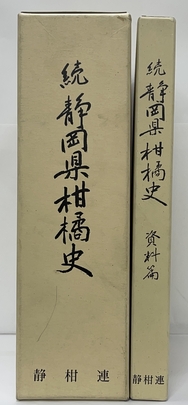 続 静岡県柑橘史
静柑連
続 静岡県柑橘史 資料篇
静柑連